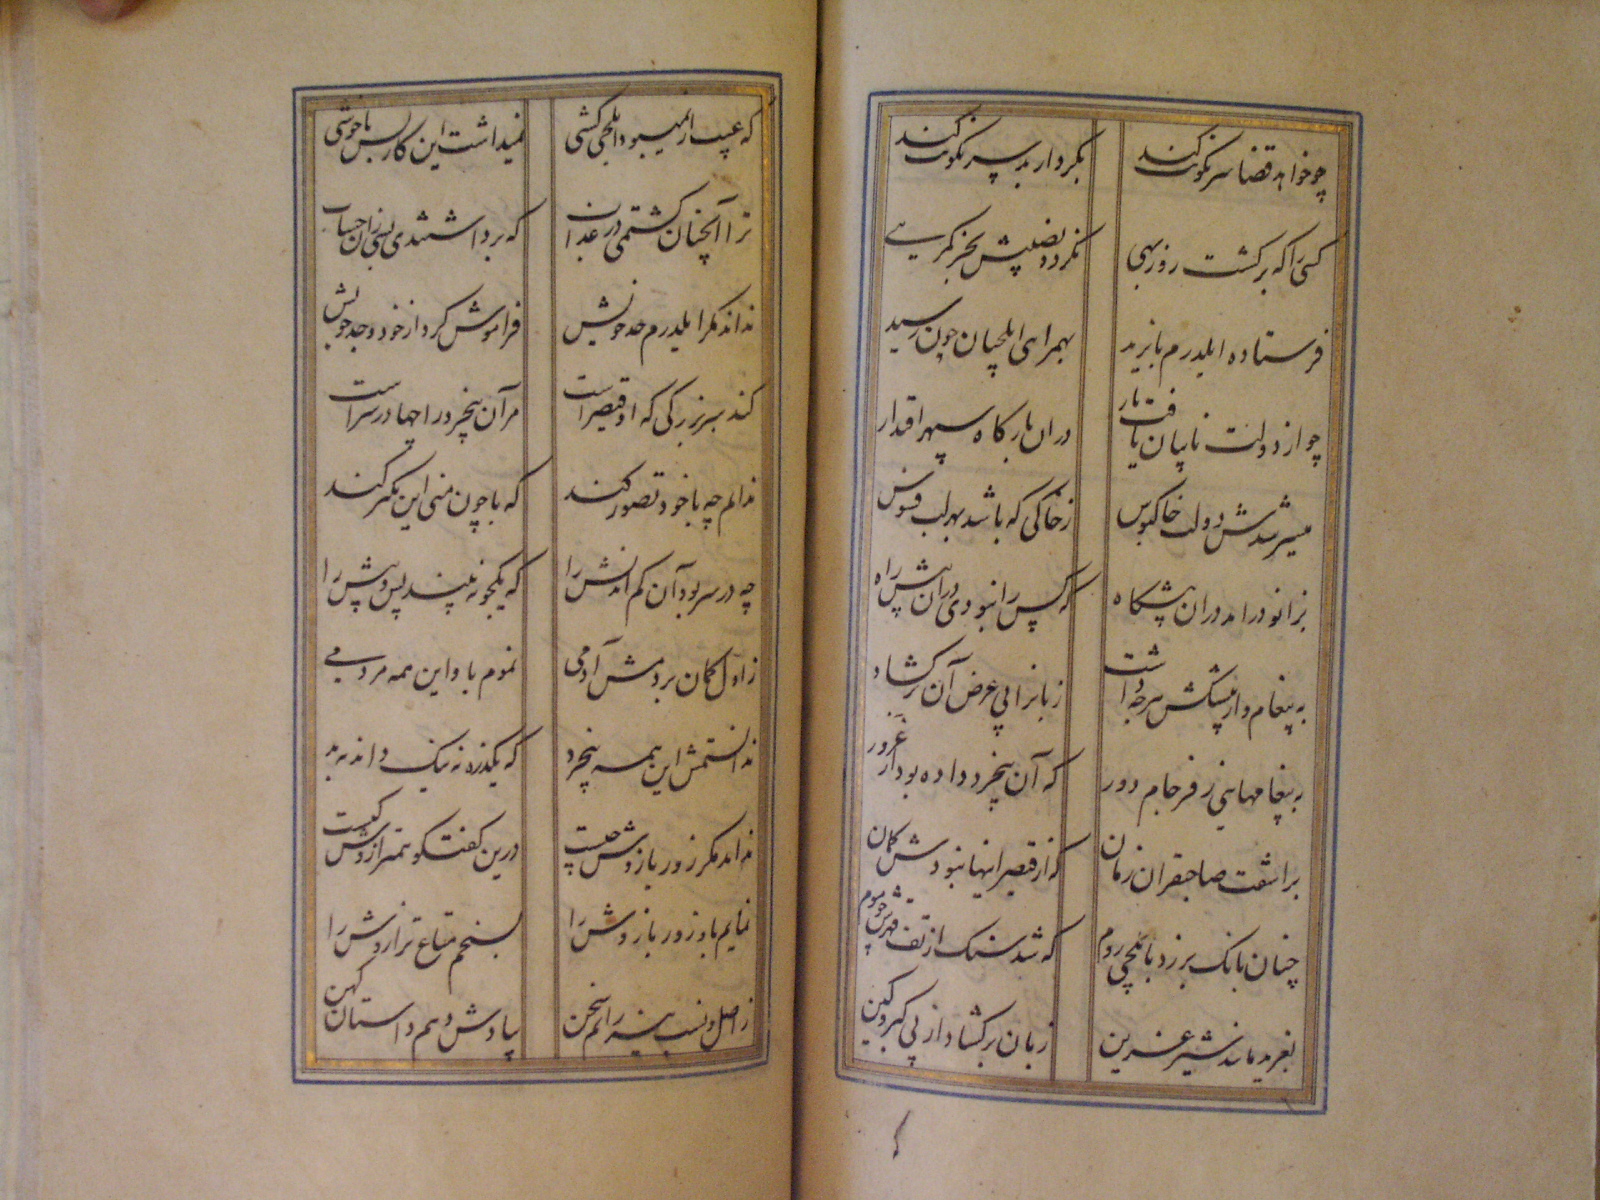 چو خواهد قضا سرنگونت کند بکردار بد رهنمونت کند
کسی را که برکشت روز بهی نکردد نصیبش بجز کمرهی
فرستاده ایلدرم بایزید بهمراهی ایلچیان چون رسید
چو از دولت ناپیان یافت بار دران بارکاه سپهر اقتدار
میسر شدش دولت خاکبوس ز خاکی که باشد بهر لب فسوس
بزانو درامد دران پیشکاه که کس را نبودی دران پیش راه
به پیغام و از پیشکش هرچه داشت زبانرا پی عرض آن برکشاد
به پیغامهایی ز فرجام دور که آن بیخرد داده بود از غرور
براشفت صاحبقران زمان که از قیصر اینها نبودش کمان
چنان بانک برزد بایلچی روم که شد سنک از تف قهرش چو موم
بغرید مانند شیر عرین زبان برکشاد از پی کبر و کین
که عیب ار نمیبود ایلچی کشی نمیداشت این کار بس ناخوشی
ترا آنچنان کشتمی در عذاب که برداشتندی بسی زان حساب
نداند مکر ایلدرم حد خویش فراموش کرد از خود و جد خویش
کند سر بزرکی که او قیصر است مر آن بیخرد را چها در سر است
ندانم چه با خود تصور کند که با چون منی این تکبر کند
چه در سر بود آن کم اندیش را که یکجو نه بیند پس و پیش را
ز اول کمان بردمش آدمی نموم باو این همه مردمی
ندانستمش این همه بیخرد که یکذره نه نیک داند نه بد
نداند مکر زور بازوش چیست درین کفتکو هم ترازوش کیست
نمایم باو زور بازوش را بسنجم متاع ترازوش را
ز اصل و نسب نیز رانم سخن بیادش دهم داستان کهن